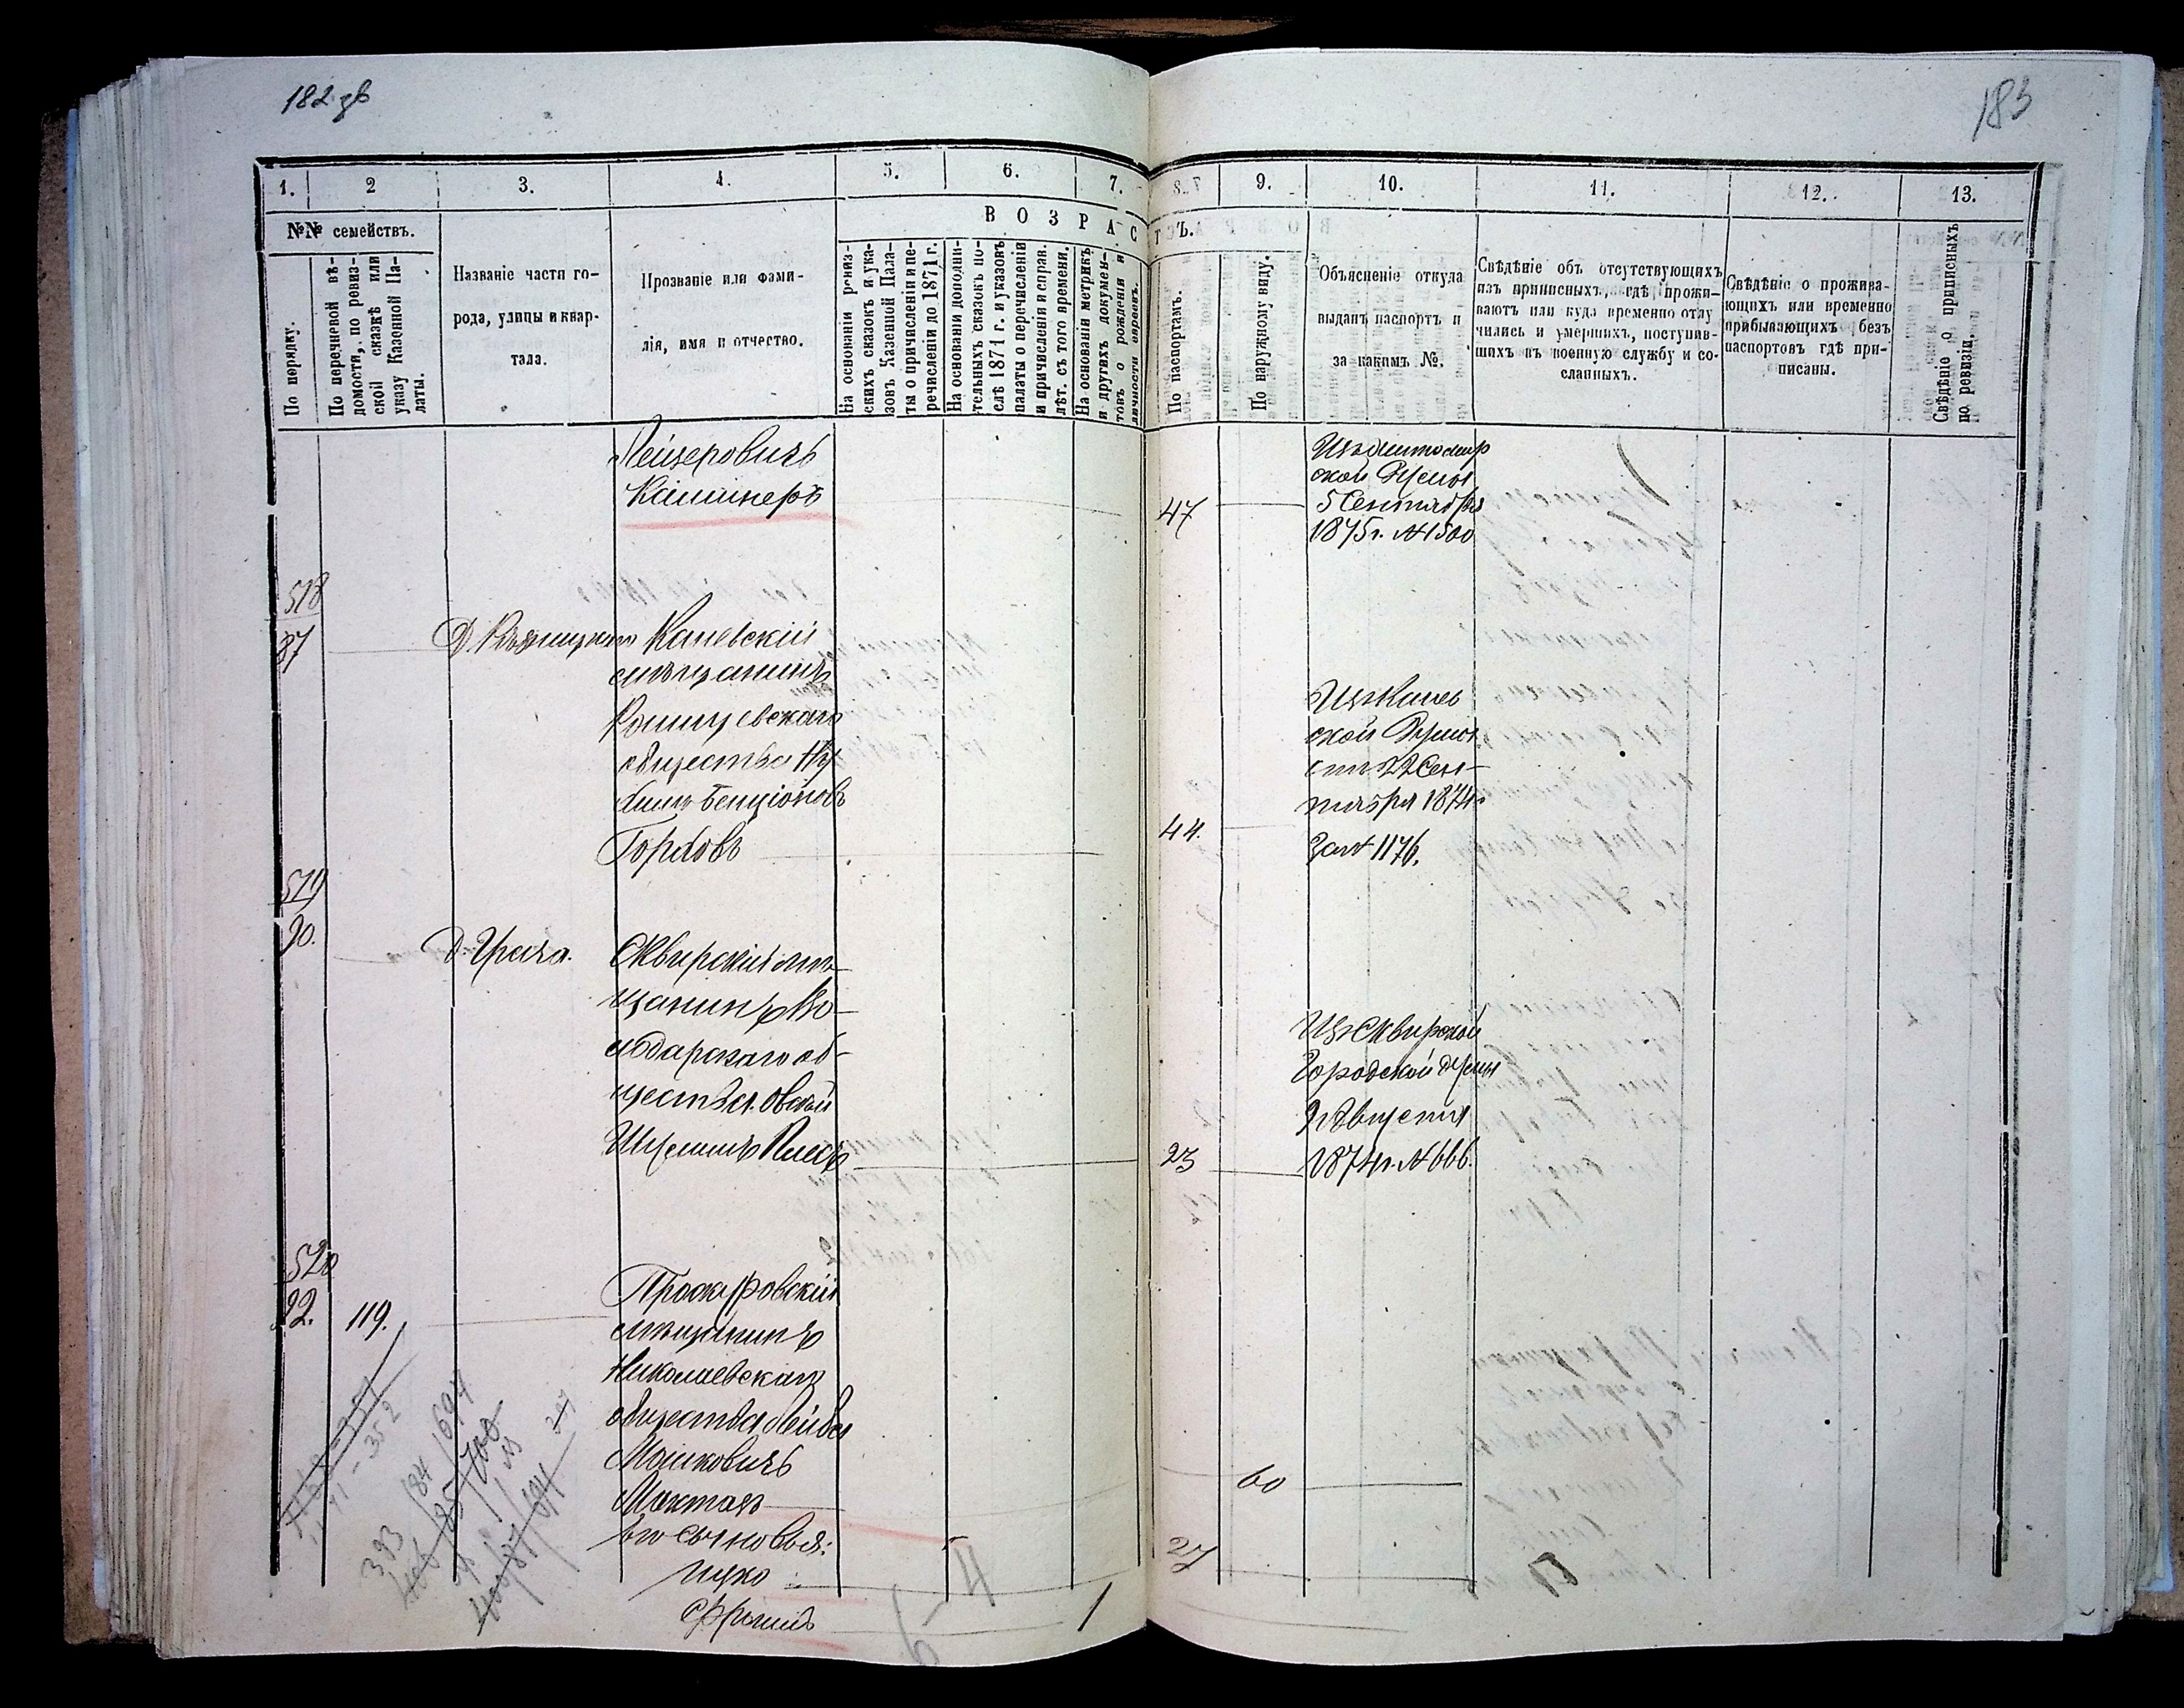 182 зв
183
1.
2
3.
4.
5.
6.
7.
8.
9.
10.
11.
12.
13.
№№ семействъ.
ВОЗРАСТЪ.
По порядку.
По перечневой вѣ-
домости, по ревиз-
ской сказкѣ или
указу Казенной Па-
латы.
Названіе части го-
рода, улицы и квар-
тала.
Прозваніе или фами-
лія, имя и отчество.
На основаніи ревиз-
скихъ сказокъ и ука-
зовъ Казенной Пала-
ты о причисленіи и пе-
речисленіи до 1871 г.
На основаніи дополни-
тельныхъ сказокъ по-
слѣ 1871 г. и указовъ
палаты о перечисленіи
и причисленіи и справ.
лѣт. съ того времени.
На основаніи метрикъ
и другихъ докумен-
товъ о рожденіи и
личности евреевъ.
По паспортамъ.
По наружному виду.
Объясненіе откуда
выданъ паспортъ и
за какимъ №.
Свѣдѣніе объ отсутствующихъ
изъ приписныхъ, гдѣ прожи-
ваютъ или куда временно отлу
чились и умершихъ, поступив-
шихъ въ военную службу и со-
сланныхъ.
Свѣдѣніе о прожива-
ющихъ или временно
прибывающихъ безъ
паспортовъ гдѣ при-
писаны.
Свѣдѣніе о приписныхъ
по ревизіи.
Лейзеровичъ
Каминеръ
47
Изъ Житомир
ской Думы
5 Сентября
1875 г. № 1500
518
87
Каневскій
мѣщанинъ
общества
Бенціоновъ
Горбовъ
44.
Изъ Канев
ской Думы
22 Сен-
тября 1874 г.
за № 1176.
519
90.
Сквирскій мѣ-
щанинъ Во-
лодарскаго об-
щества Овсей
23
Изъ Сквирской
Городской думы
1874 г. № 666.
520
92.
119.
Проскуровскій
мѣщанинъ
Николаевскаго
общества Лейба
Мошковичъ
60
Его сыновья:
Ицко
27
Фроимъ
1